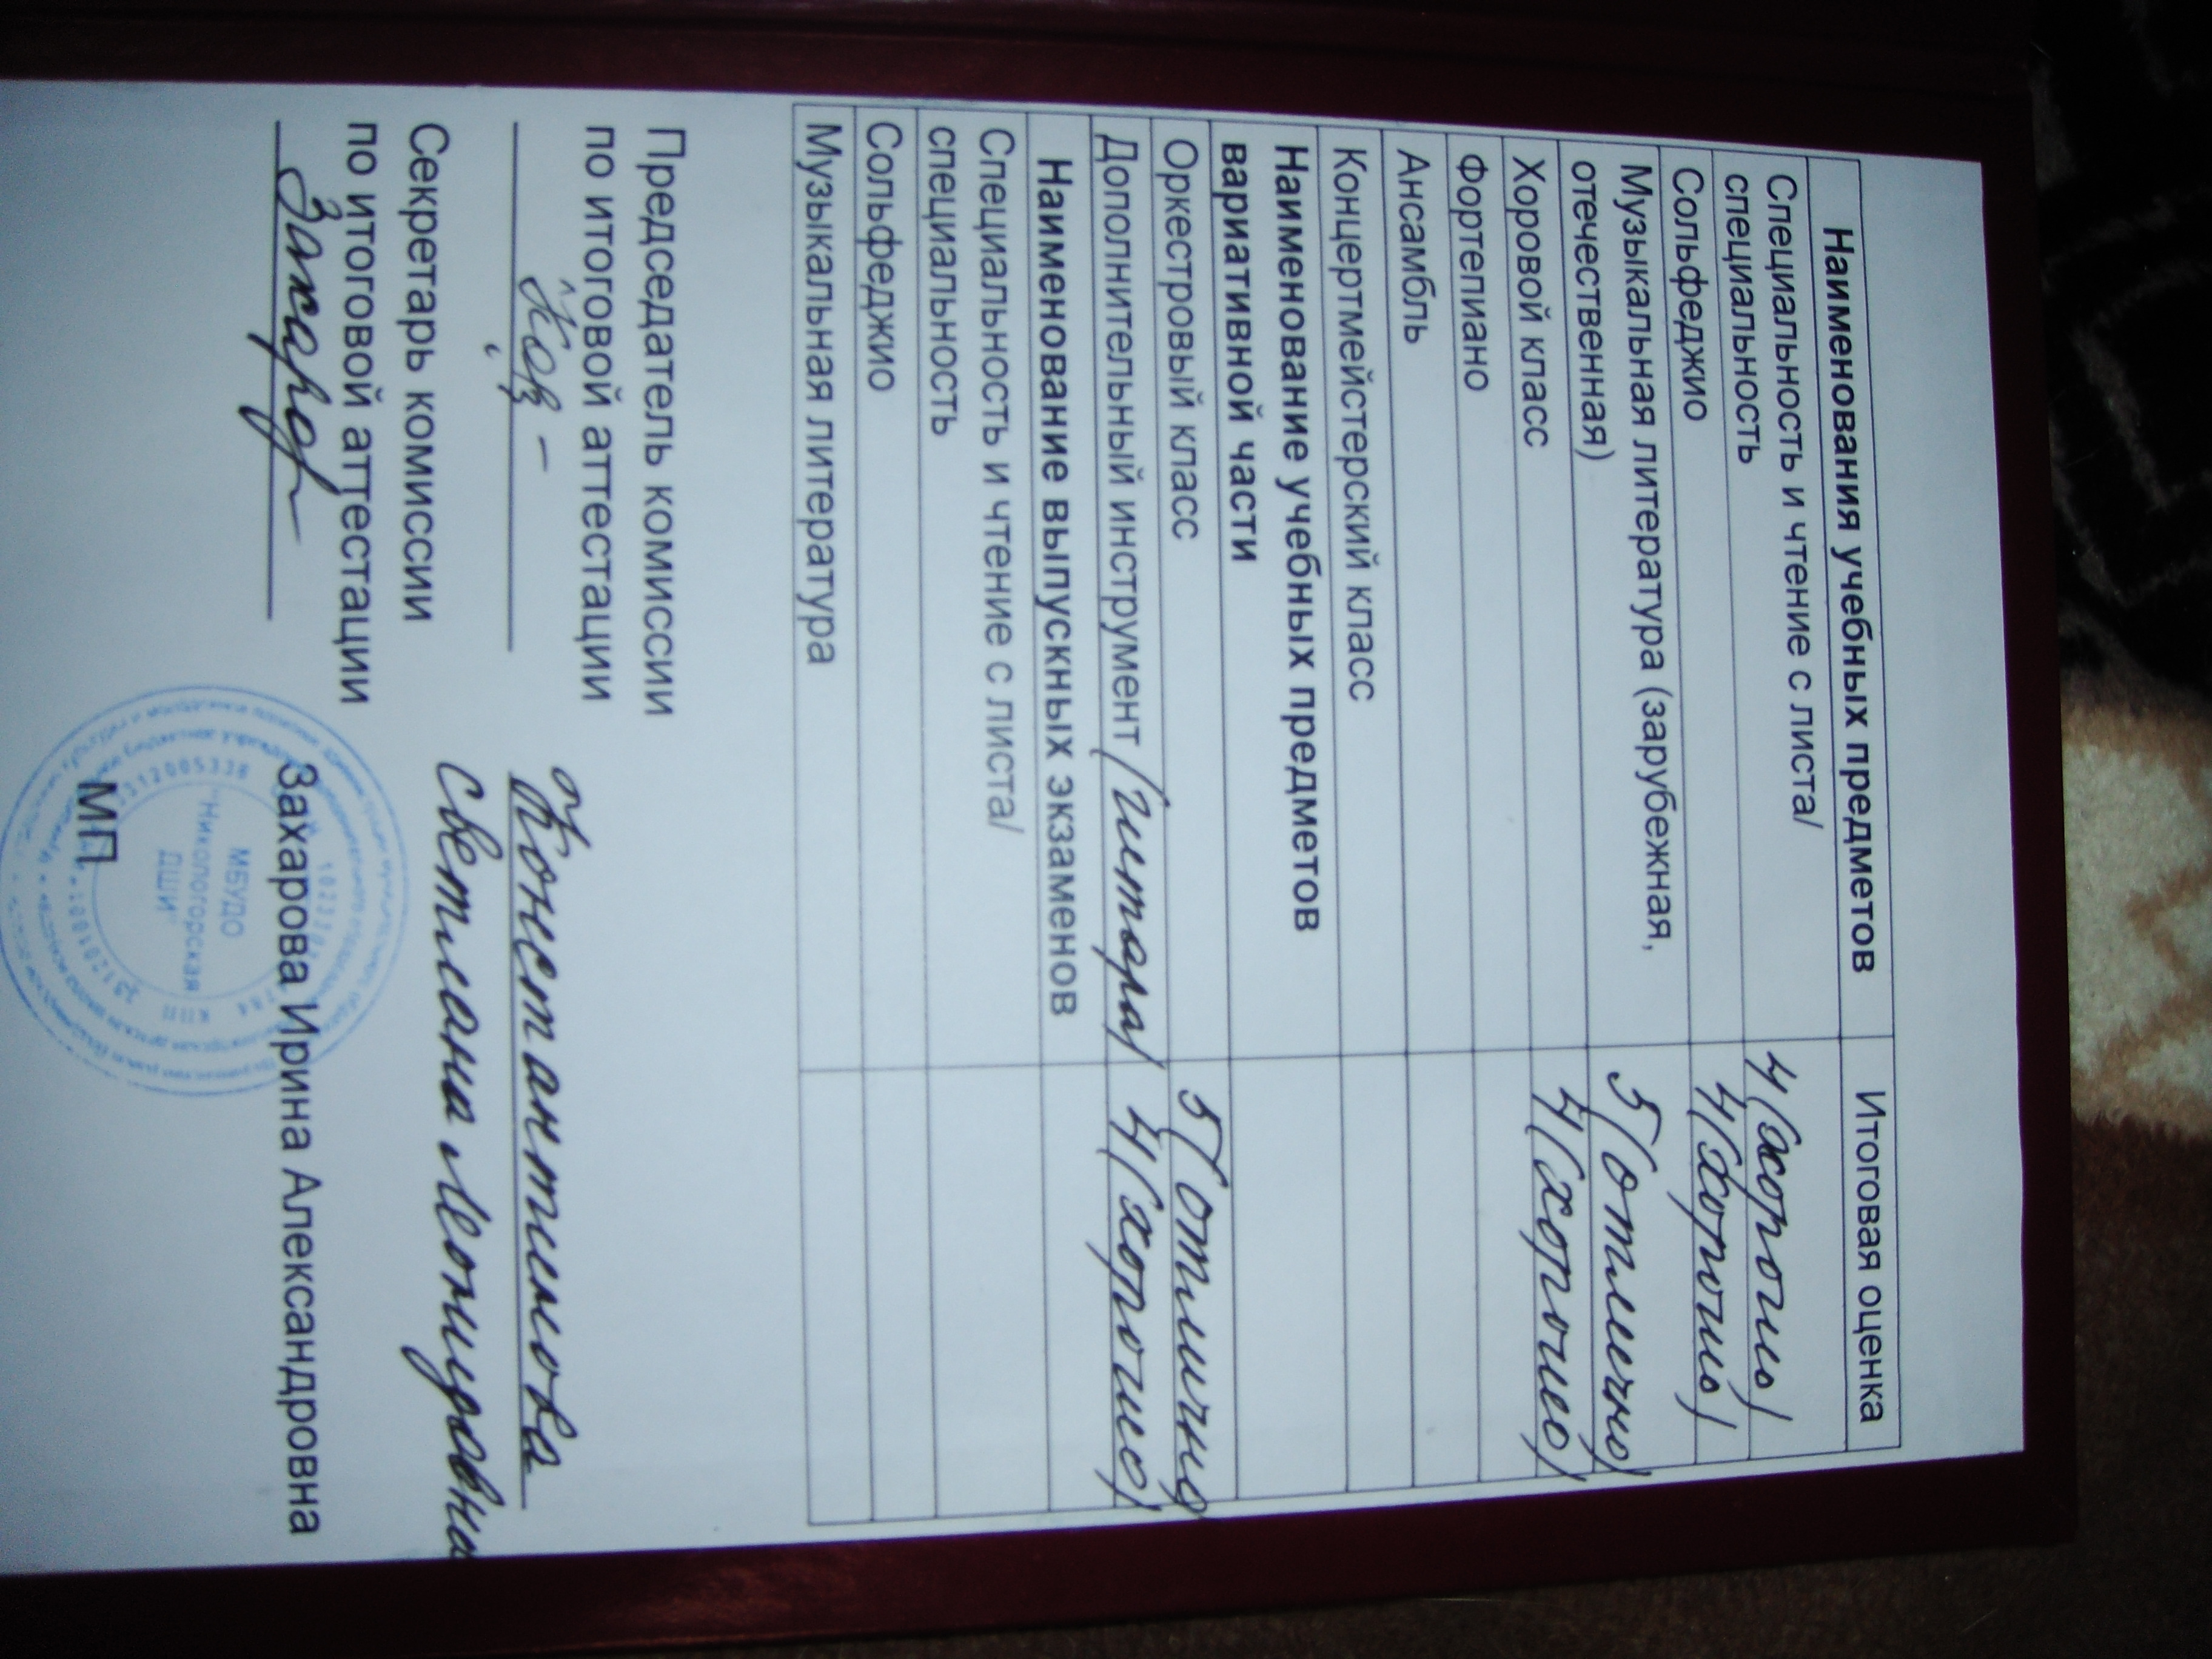 Наименования учебных предметов Итоговая оценка
Специальность и чтение с листа/
специальность 4 (хорошо)
Сольфеджио 4 (хорошо)
Музыкальная литература (зарубежная,
отечественная) 5 (отлично)
Хоровой класс 4 (хорошо)
Фортепиано
Ансамбль
Концертмейстерский класс
Наименование учебных предметов
вариативной части
Оркестровый класс 5 (отлично)
Дополнительный инструмент (гитара) 4 (хорошо)
Наименование выпускных экзаменов
Специальность и чтение с листа/
специальность
Сольфеджио
Музыкальная литература
Председатель комиссии
по итоговой аттестации
Константинова
Светлана Леонидовна
Секретарь комиссии
по итоговой аттестации
Захарова Ирина Александровна
МП
МБУДО
"Никологорская
ДШИ"